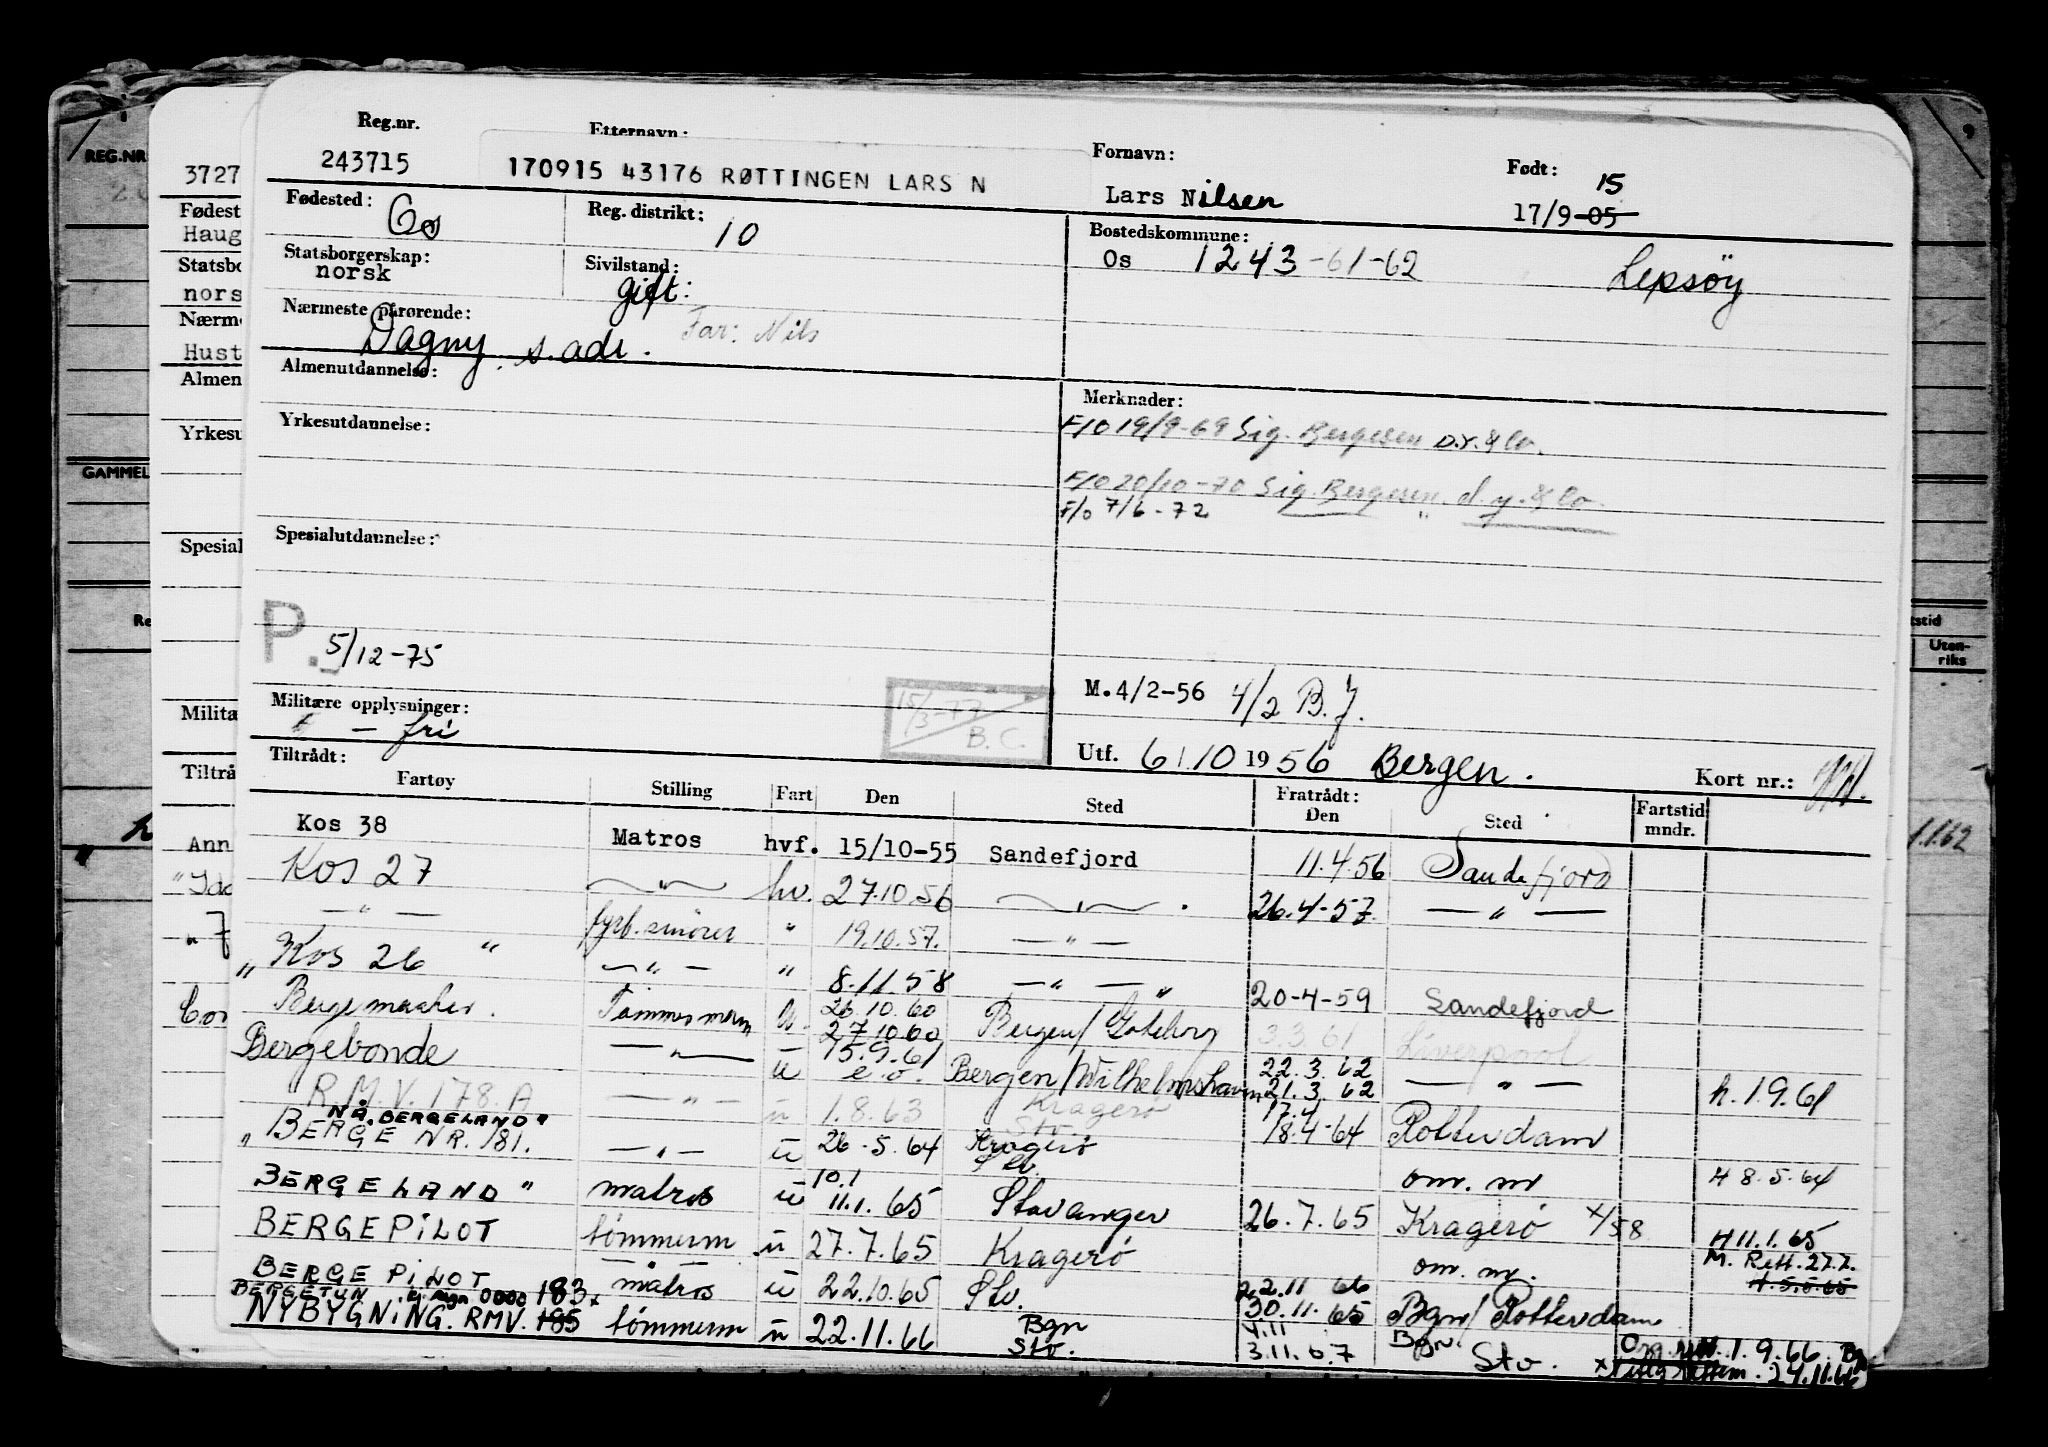 Reg.nr. Etternavn: Fornavn: Født:
243715 170915 43176 RØTTINGEN LARS N Lars Nilsen 15
17/9-05
Fødested: Os Reg. distrikt: 10 Bostedskommune:
Os 1243-61-62 Lepsöy
Statsborgerskap: norsk Sivilstand: gift:
Nærmeste pårørende: Far: Nils
Dagny. s. adr.
Almenutdannelse: Merknader:
Yrkesutdannelse: F/O 19/9-69 Sig. Bergesen D.Y. & Co.
F/O 20/10-70 Sig. Bergesen d.y. & Co.
F/o 7/6-72
Spesialutdannelse:
P. 5/12-75
M. 4/2-56 4/2 B.J.
15/3-77
B.C.
Militære opplysninger:
- fri
Utf. 6/10 1956 Bergen. Kort nr.:
Tiltrådt: Fratrådt:
Fartøy Stilling Fart Den Sted Den Sted Fartstid mndr.
Kos 38 Matros hvf. 15/10-55 Sandefjord 11.4.56 Sandefjord
Kos 27 — " — hv. 27.10.56 — " — . 26.4-57. — " —
— " — fyrb. smører " 19.10.57. — " —
" Kos 26 " — " — " 8.11.58 — " — " 20-4-59 Sandefjord
26.10.60
Bergemaster. Tömmermenn u. 27.10.60 Bergen/Göteborg 3.3.61 Liverpool
15.9.61 22.3.62
Bergebonde — " — u e.o. Bergen/Wilhelmshaven 21.3.62 — " — h. 1.9.61
R.M.V. 178.A — " — u 1.8.63 Kragerø 17.4
Stv
NÅ. BERGELAND" 18.4-64 Rotterdam
" BERGE NR. 181. — " — u 26.5.64 Kragerö
Stv. om. nr H 8.5.64
10.1
BERGELAND " matros u 11.1.65 Stavanger 26.7.65 Kragerö x/58 H 11.1.65
BERGEPILOT tömmerm u 27.7.65 Kragerö om. nr. M. Rett. 27.7.
H. 5.8.65
BERGE PILOT matros u 22.10.65 Stv. 22.11 66
30.11.65 Bgn/Rotterdam
BERGETUN 183
NYBYGNiNG. RMV. 185 tömmerm u 22.11.66 Bgn
Stv. 4.11
3.11.67 Bgn. Stv. 1.9.66 Bgn
24.11.66
REG.NR
3727
Fødest
Haug
Statsbo
nors
Nærme
Hust
Almen
Yrkesu
GAMMEL
Spesial
Re
Milita
Tiltrå
Ann
tstid
Uten-
riks
1.1.62